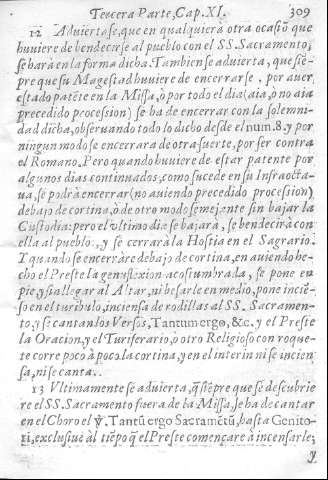 Tercera Parte, Cap. XI. 309
12 Aduiertase, que en qualquiera otra ocasiõ que
huuiere de bendecirse al pueblo con el SS. Sacramento,
se hará en la forma dicha. Tambien se aduierta, que siẽ-
pre que su Magestad huuiere de encerrarse, por auer
estado patẽte en la Missa, ò por todo el dia (aia, ò no aia
precedido procession) se ha de encerrar con la solemni-
dad dicha, obseruando todo lo dicho desde el num. 8. y por
ningun modo se encerrara de otra suerte, por ser contra
el Romano. Pero quando huuiere de estar patente por
algunos dias continuados, como sucede en su Infraocta-
ua, se podrà encerrar (no auiendo precedido procession)
debajo de cortina, ò de otro modo semejante sin bajar la
Custodia: pero el vltimo dia se bajará, se bendecirà con
ella al pueblo, y se cerrarà la Hostia en el Sagrario.
Y quando se encerrâre debajo de cortina, en auiendo he-
cho el Preste la genuflexion acostumbrada, se pone en
pie, y sin llegar al Altar, ni besarle en medio, pone inciẽ-
so en el turibulo, inciensa de rodillas al SS. Sacramen-
to, y se cantan los Versos, Tantum ergo, &c. y el Preste
la Oracion, y el Turiferario, ò otro Religioso con roque-
te corre poco à poco la cortina, y en el interin ni se incien-
sa, ni se canta.
13 Vltimamente se aduierta, q̃ siẽpre que se descubrie
re el SS. Sacramento fuera de la Missa, se ha de cantar
en el Choro el ℣. Tantũ ergo Sacramẽtũ, hasta Genito-
ri, exclusiuè al tiẽpo q̃ el Preste començare à incensarle;
y